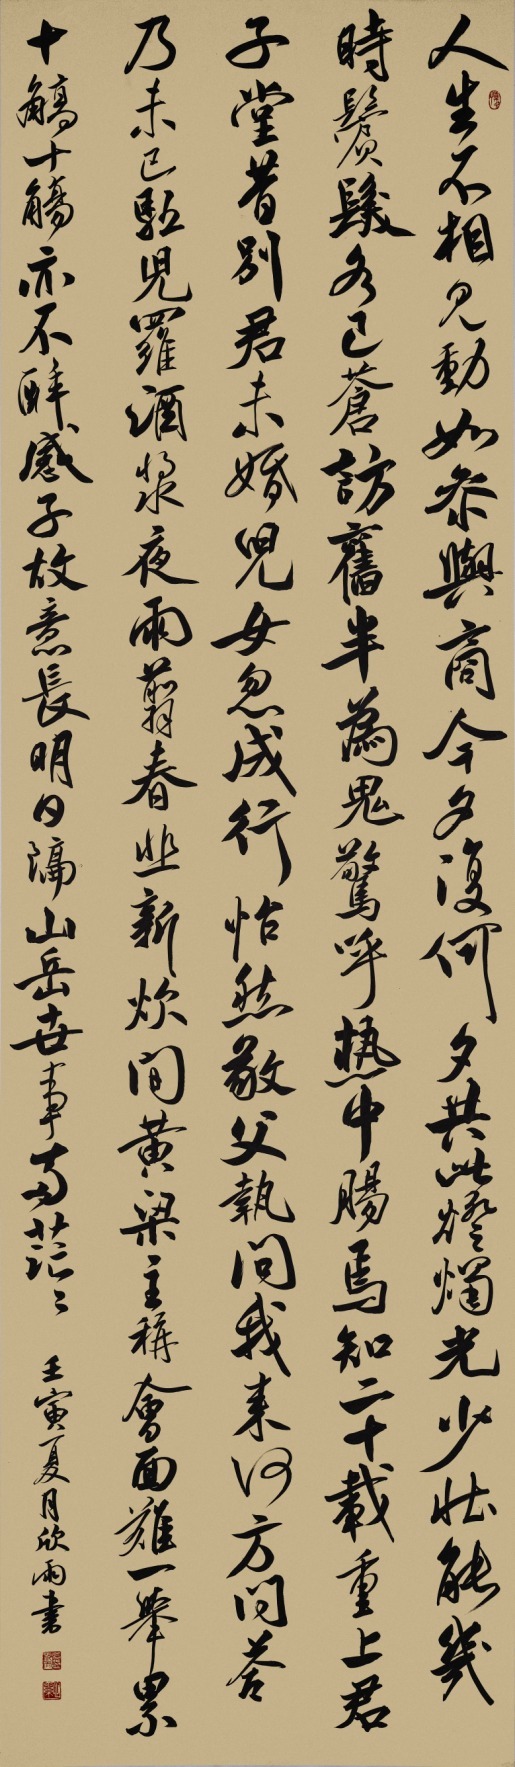 人生不相見動如參與商今夕復何夕共此燈燭光少壯能幾
時鬢髮各已蒼訪舊半為鬼驚呼熱中腸焉知二十載重上君
子堂昔別君未婚兒女忽成行怡然敬父執問我來何方問答
乃未已駈兒羅酒漿夜雨翦春韭新炊間黃粱主稱會面難一舉累
十觴十觴亦不醉感子故意長明日隔山岳世事兩茫〻
壬寅夏月欣雨書